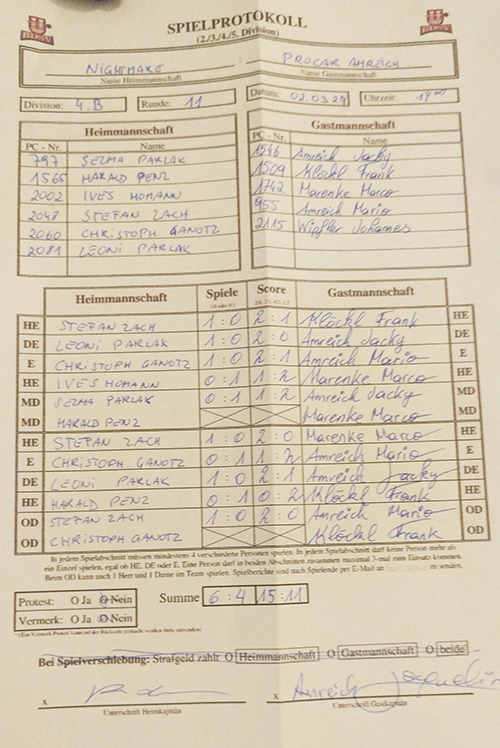 SPIELPROTOKOLL
(2./3./4./5. Division)
NIGHTMARE : PROCAR AMREICH
Name Heimmannschaft Name Gastmannschaft
Division: 4.B Runde: 11 Datum: 02.03.24 Uhrzeit: 19⁰⁰
Heimmannschaft Gastmannschaft
PC - Nr. Name PC - Nr. Name
797 SELMA PARLAK 1546 Amreich Jacky
1565 HARALD PENZ 1509 Klöckl Frank
2002 IVES HOMANN 1742 Marenke Marco
2048 STEFAN ZACH 955 Amreich Mario
2060 CHRISTOPH GANOTZ 2115 Wipfler Johannes
2081 LEONI PARLAK
Heimmannschaft Spiele Score Gastmannschaft
HE STEFAN ZACH 1 : 0 2 : 1 Klöckl Frank HE
DE LEONI PARLAK 1 : 0 2 : 0 Amreich Jacky DE
E CHRISTOPH GANOTZ 1 : 0 2 : 1 Amreich Mario E
HE IVES HOMANN 0 : 1 1 : 2 Marenke Marco HE
MD SELMA PARLAK 0 : 1 1 : 2 Amreich Jacky MD
MD HARALD PENZ Marenke Marco MD
HE STEFAN ZACH 1 : 0 2 : 0 Marenke Marco HE
E CHRISTOPH GANOTZ 0 : 1 1 : 2 Amreich Mario E
DE LEONI PARLAK 1 : 0 2 : 1 Amreich Jacky DE
HE HARALD PENZ 0 : 1 0 : 2 Klöckl Frank HE
OD STEFAN ZACH 1 : 0 2 : 0 Amreich Mario OD
OD CHRISTOPH GANOTZ Klöckl Frank OD
In jedem Spielabschnitt müssen mindestens 4 verschiedene Personen spielen. In jedem Spielabschnitt darf keine Person mehr als
ein Einzel spielen, egal ob HE, DE oder E. Eine Person darf in beiden Abschnitten zusammen maximal 3-mal zum Einsatz kommen.
Beim OD kann auch 1 Herr und 1 Dame im Team spielen. Spielberichte sind nach Spielende per E-Mail an zu senden.
Protest: O Ja O Nein Summe 6 : 4 15 : 11
Vermerk: O Ja O Nein
Bei Spielverschiebung: Strafgeld zahlt O Heimmannschaft O Gastmannschaft O beide
x x Amreich
Unterschrift Heimkapitän Unterschrift Gastkapitän